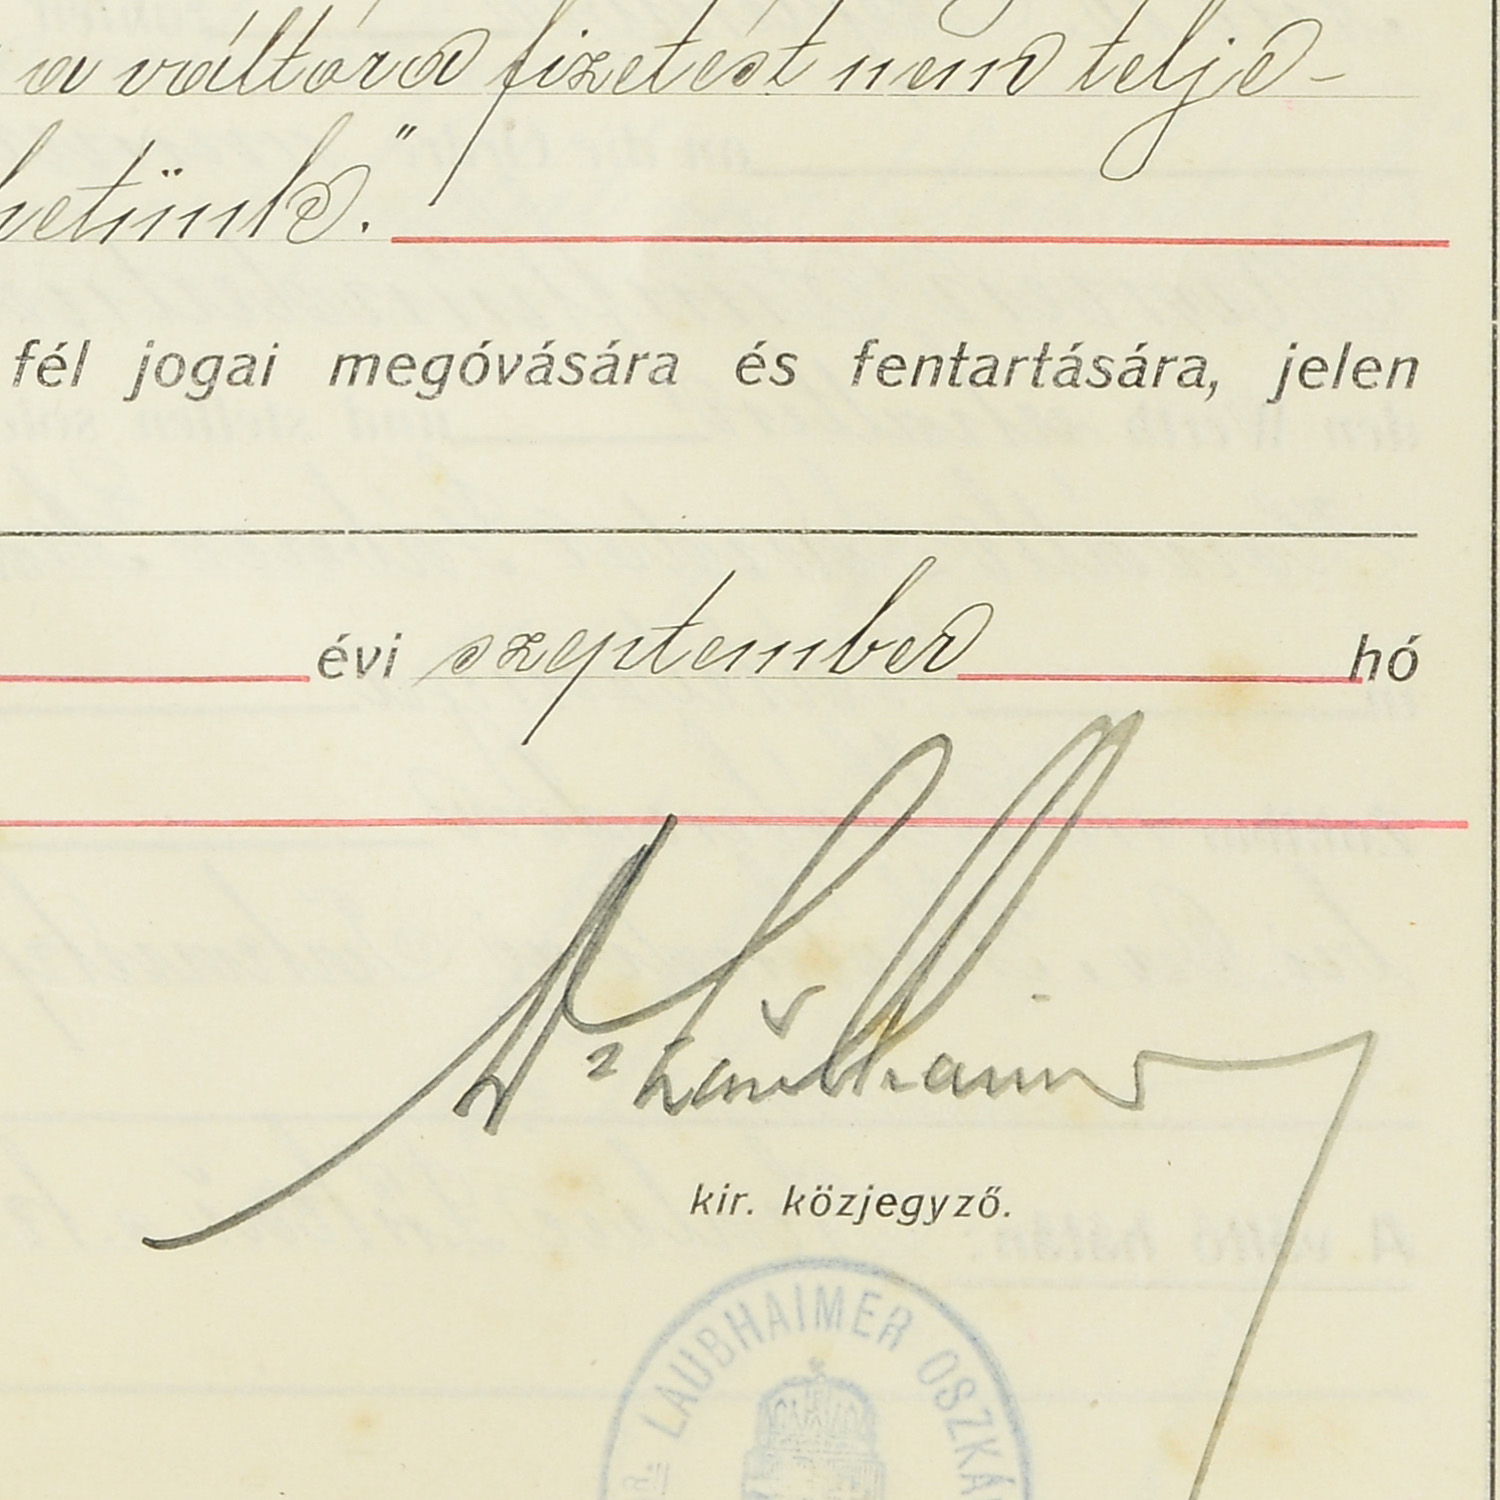 a váltóra fizetést nem telje-
hetünk."
fél jogai megóvására és fentartására, jelen
évi szeptember hó
Dr Laubhaimer
kir. közjegyző.
DR LAUBHAIMER OSZKÁR